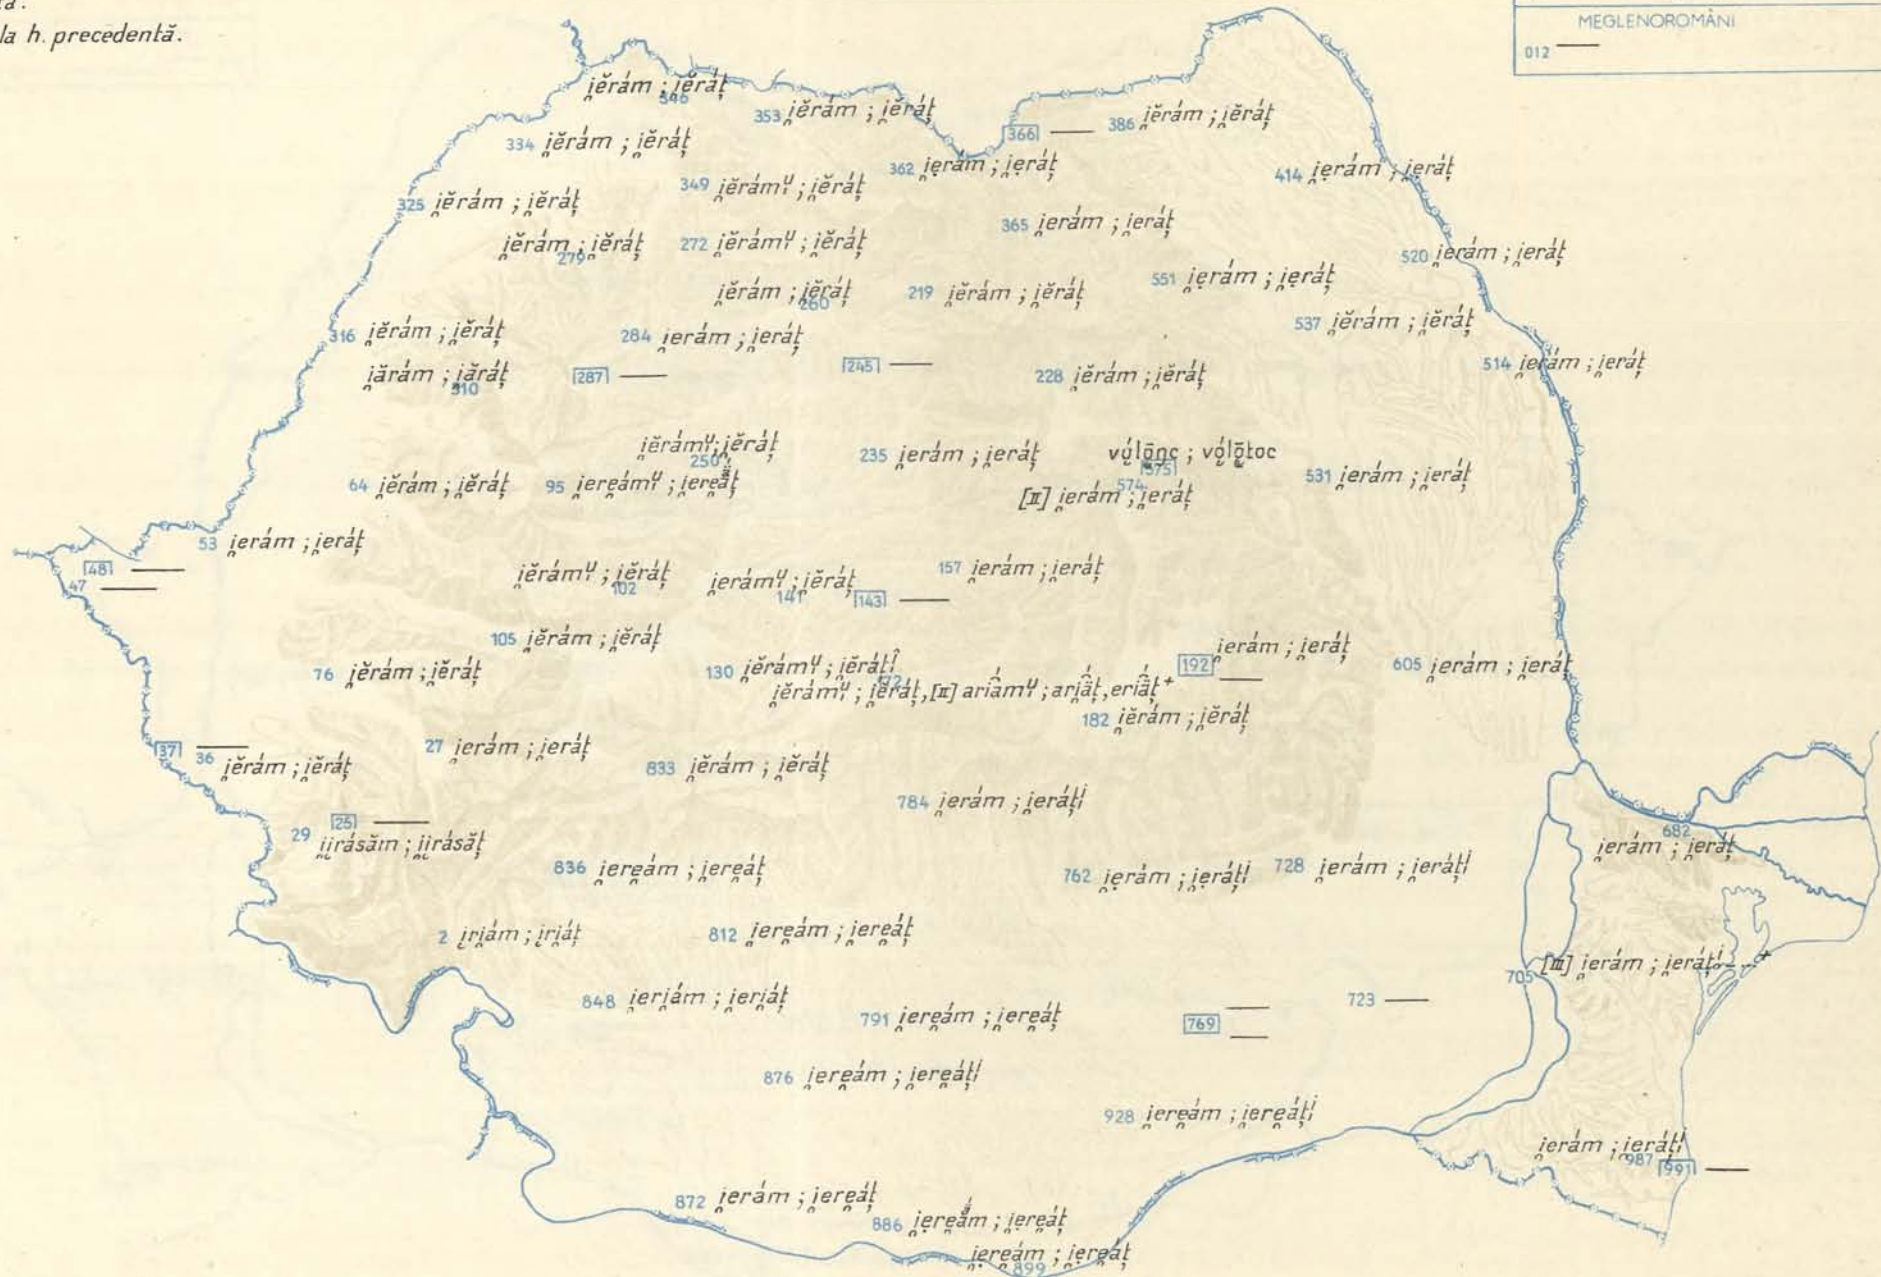 la h. precedentă.
MEGLENOROMÂNI
012 —
i̯ĕrám ; i̯ĕráț
346
353 i̯ĕrám ; i̯ĕráț
366 —
386 i̯ĕrám ; i̯ĕráț
334 i̯ĕrám ; i̯ĕráț
362 i̯ẹrám ; i̯ẹráț
414 i̯ẹrám ; i̯ẹráț
349 i̯ĕrámᶸ ; i̯ĕráț
325 i̯ĕrám ; i̯ĕráț
365 i̯erám ; i̯eráț
i̯ĕrám ; i̯ĕráț
279
272 i̯ĕrámᶸ ; i̯ĕráț
520 i̯erám ; i̯eráț
551 i̯ẹrám ; i̯ẹráț
i̯ĕrám ; i̯ĕráț
260
219 i̯ĕrám ; i̯ĕráț
537 i̯ĕrám ; i̯ĕráț
316 i̯ĕrám ; i̯ĕráț
284 i̯erám ; i̯eráț
514 i̯erám ; i̯eráț
i̯ărám ; i̯ăráț
310
287 —
245 —
228 i̯ĕrám ; i̯ĕráț
i̯ĕrámᶸ ; i̯ĕráț
250
235 i̯erám ; i̯eráț
575
574
[II] i̯erám ; i̯eráț
531 i̯erám ; i̯eráț
64 i̯ĕrám ; i̯ĕráț
95 i̯ere̯ámᶸ ; i̯ere̯áț
53 i̯erám ; i̯eráț
48 —
47 —
i̯ĕrámᶸ ; i̯ĕráț
102
i̯erámᶸ ; i̯ĕráț
141
143 —
157 i̯erám ; i̯eráț
105 i̯ĕrám ; i̯ĕráț
i̯erám ; i̯eráț
192 —
76 i̯ĕrám ; i̯ĕráț
130 i̯ĕrámᶸ ; i̯ĕráțⁱ
605 i̯erám ; i̯eráț
i̯ĕrámᶸ ; i̯ĕráț, [II] ari̯ámᶸ ; ari̯áț, eri̯áț⁺
182 i̯ĕrám ; i̯ĕráț
37 —
36 i̯ĕrám ; i̯ĕráț
27 i̯erám ; i̯eráț
833 i̯ĕrám ; i̯ĕráț
784 i̯erám ; i̯eráțⁱ
25 —
29 i̯irásăm ; i̯irásăț
682
i̯erám ; i̯eráț
836 i̯ere̯ám ; i̯ere̯áț
762 i̯ẹrám ; i̯ẹráțⁱ
728 i̯erám ; i̯eráțⁱ
2 i̯ri̯ám ; i̯ri̯áț
812 i̯ere̯ám ; i̯ere̯áț
705 [III] i̯erám ; i̯eráțⁱ — — ⁺
848 i̯eri̯ám ; i̯eri̯áț
791 i̯ere̯ám ; i̯ere̯áț
769 —
—
723 —
876 i̯ere̯ám ; i̯ere̯áțⁱ
928 i̯ere̯ám ; i̯ere̯áțⁱ
i̯erám ; i̯eráțⁱ
987
991 —
872 i̯erám ; i̯ere̯áț
886 i̯ẹre̯ám ; i̯ẹre̯áț
i̯ẹre̯ám ; i̯ẹre̯áț
899